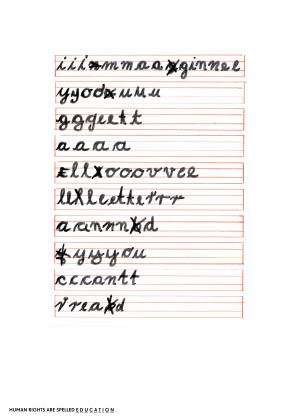 iii mmaa ginnel
yyod uuu
gggeett
aaaa
Ell ooovvee
lelleetterrr
aannn d
yyyou
cccantt
Vrea d
HUMAN RIGHTS ARE SPELLED EDUCATION